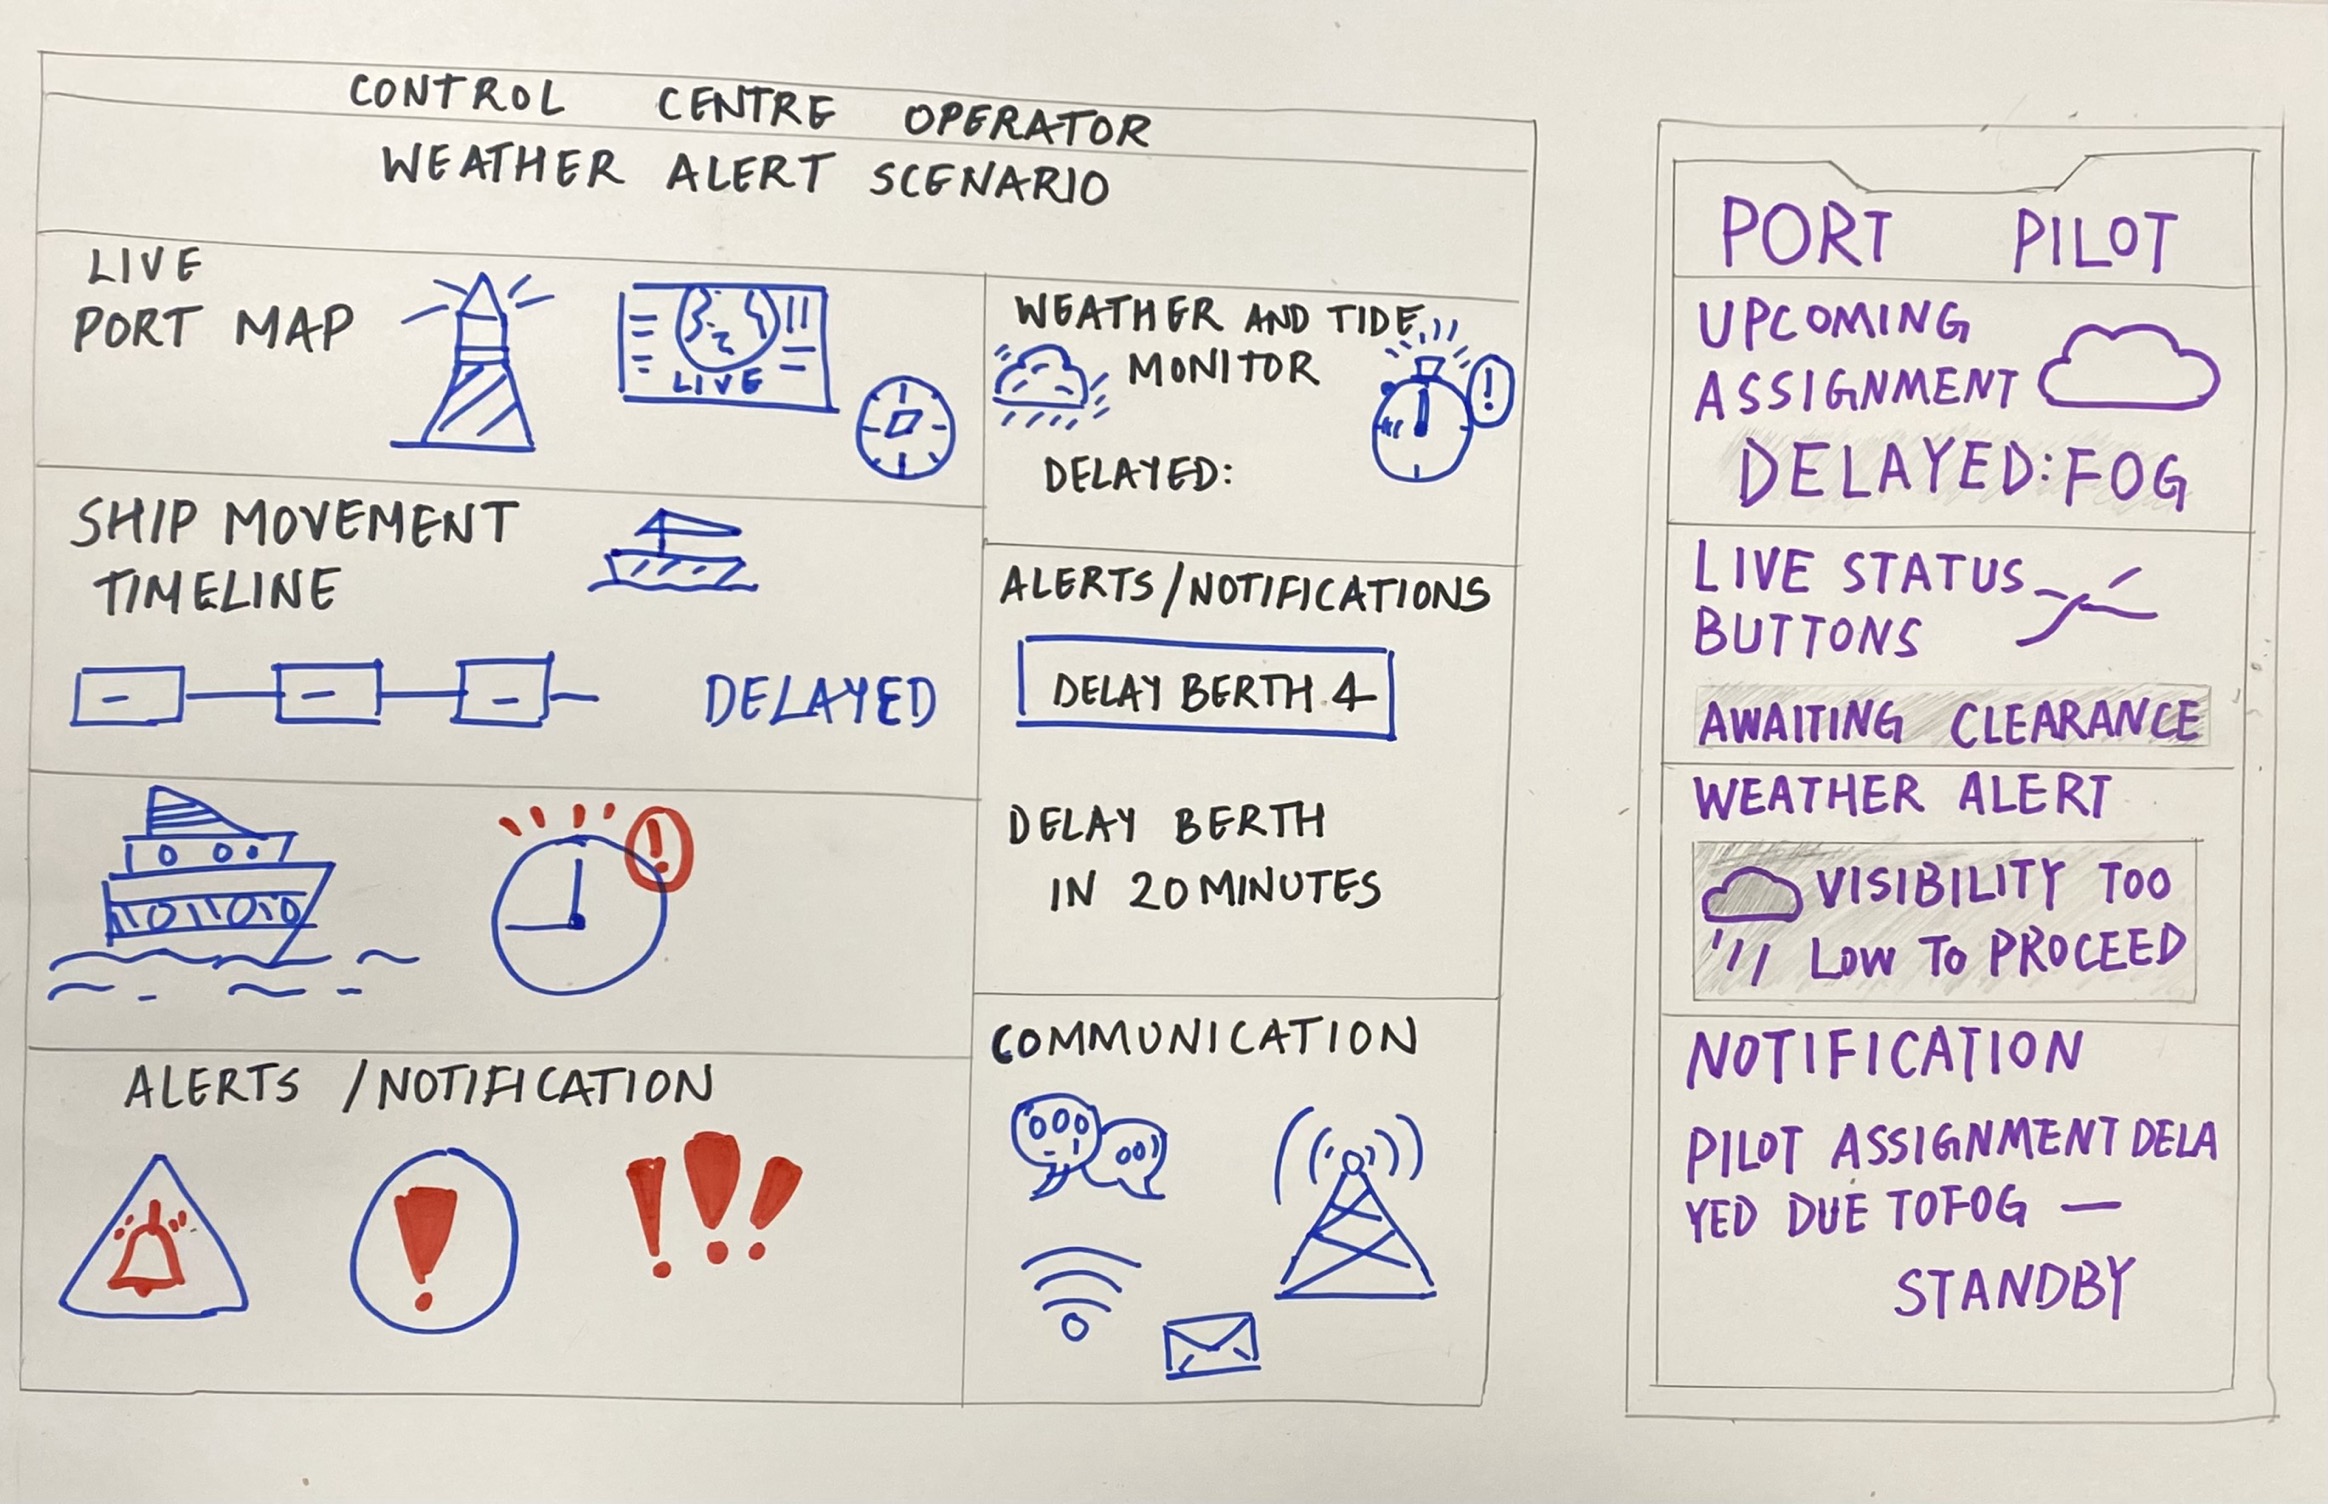 CONTROL CENTRE OPERATOR
WEATHER ALERT SCENARIO
LIVE
PORT MAP
LIVE
SHIP MOVEMENT
TIMELINE
DELAYED
!
ALERTS /NOTIFICATION
!
! ! !
WEATHER AND TIDE
MONITOR
!
DELAYED:
ALERTS/NOTIFICATIONS
DELAY BERTH 4
DELAY BERTH
IN 20 MINUTES
COMMUNICATION
PORT PILOT
UPCOMING
ASSIGNMENT
DELAYED: FOG
LIVE STATUS
BUTTONS
AWAITING CLEARANCE
WEATHER ALERT
VISIBILITY TOO
LOW TO PROCEED
NOTIFICATION
PILOT ASSIGNMENT DELA
YED DUE TOFOG —
STANDBY